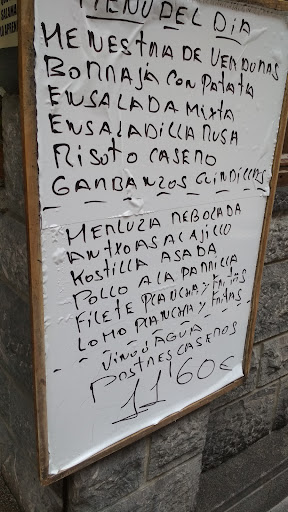 MENU DEL DIA
MENESTRA DE VERDURAS
BORRAJA CON PATATA
ENSALADA MIXTA
ENSALADILLA RUSA
RISOTO CASERO
GARBANZOS GUINDILLAS
MERLUZA REBOZADA
ANTXOAS AL AJILLO
KOSTILLA ASADA
POLLO A LA PARRILLA
FILETE PLANCHA Y FRITAS
LOMO PLANCHA Y FRITAS
VINO O AGUA
POSTRES CASEROS
11'60€